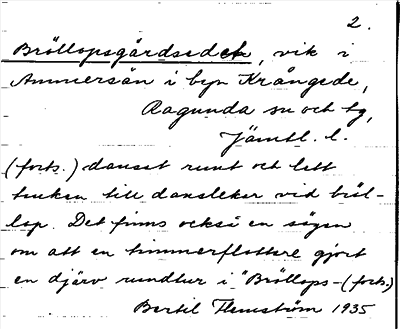 2.
Bröllopsgårdsedet, vik i
Ammersån i byn Krångede,
Ragunda sn och tg,
Jämtl. l.
(forts.) dansat runt och lett
tanken till danslekar vid bröl-
lop. Det finns också en sägen
om att en timmerflottare gjort
en djärv rundtur i "Bröllops-(forts.)
Bertil Flemström 1935